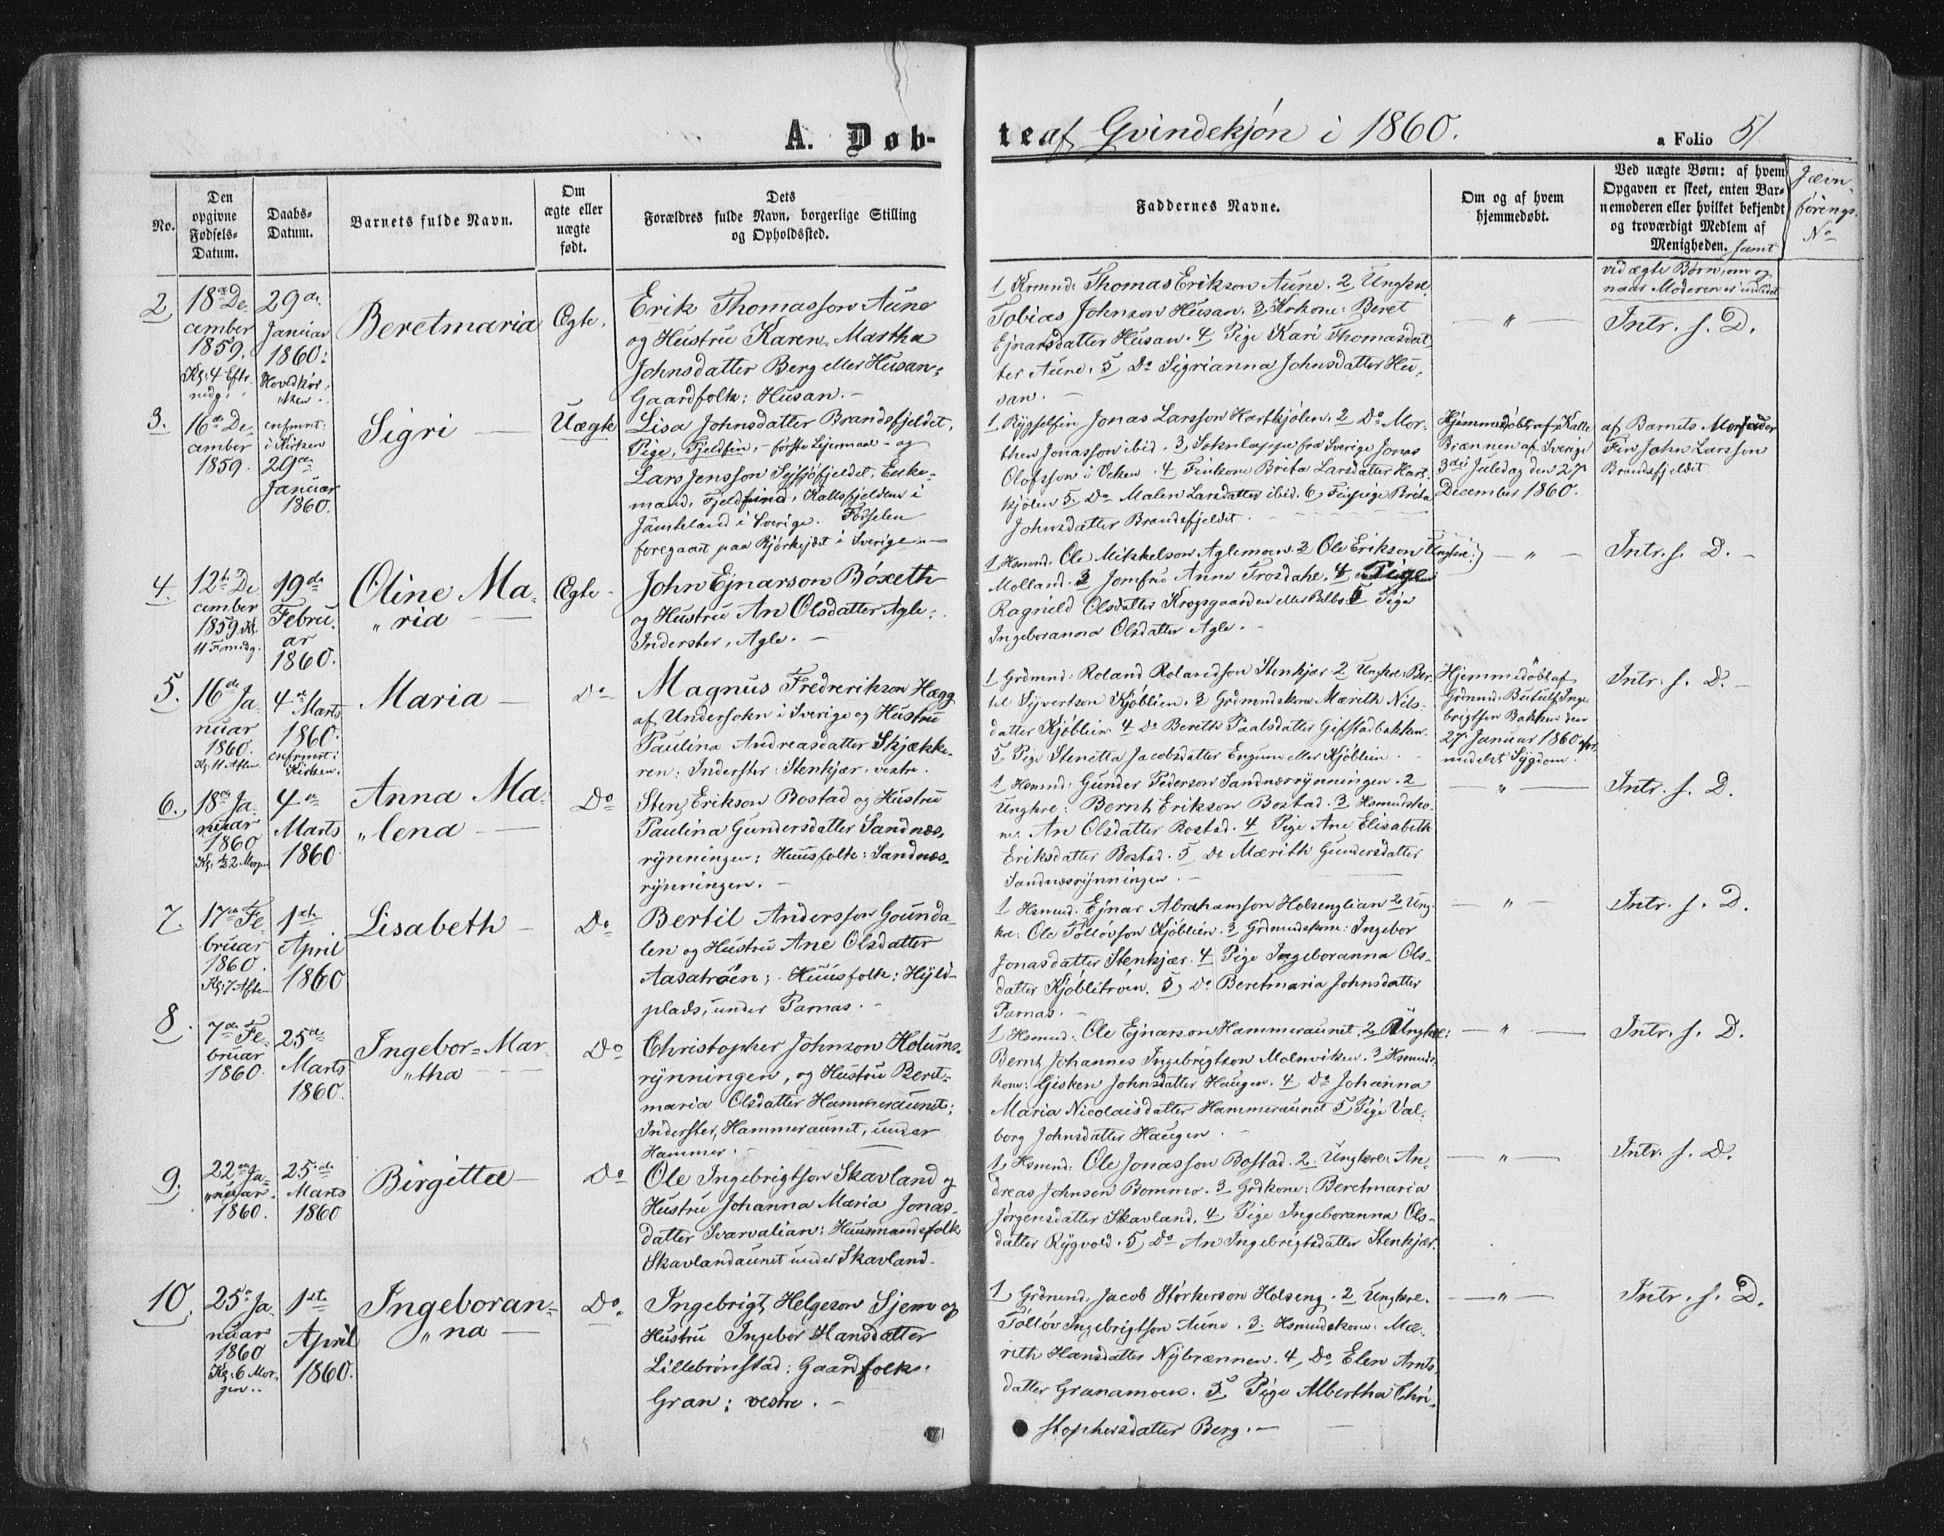 A. Døb-
te af Gvindekjøn i 1860.
a Folio 51
No.
Den opgivne Fødsels-Datum.
Daabs-Datum.
Barnets fulde Navn.
Om ægte eller uægte født.
Dets Forældres fulde Navn, borgerlige Stilling og Opholdssted.
Faddernes Navne.
Om og af hvem hjemmedøbt.
Ved uægte Børn: af hvem Opgaven er skeet, enten Barnemoderen eller hvilket bekjendt og troværdigt Medlem af Menigheden. samt
vid ægte Børn, om og
naar Moderen er indledet
Jævn-
førings-
No
2,
18de De
cember
1859.
Kl: 4 Eftr
midg.
29de
Januar
1860:
Hovedkir-
"ken.
Beretmaria
Ægte.
Erik Thomasson Aune
og Hustru Karen Martha
Johnsdatter Berg eller Husan:
Gaardfolk: Husan. -
1, Krmnd: Thomas Erikson Aune. 2, Ungkre.
Tobias Johnson Husan. 3 Krkone: Beret
Ejnarsdatter Husan. 4 Pige Kari Thomasdat
ter Aune. 5, Do Sigrianna Johnsdatter Hu-
san. -
— " —
Intr. f. D.
3.
16de De
cember
1859.
i Kirken
29de
Januar
1860.
Sigri —
Uægte
Lisa Johnsdatter Brandsfjeldet,
Pige, Fjeldfin, - første Lejermaal - og
Lars Jensson
mand, Fjeldfind, Kaltsfjeldene i
Jämteland i Sverige. Fødselen
foregaaet paa Bjørkejdet i Sverige. —
1, Jonas Larsson Hartkjølen. 2, Do Mor-
then Jonasson ibid. 3, Soknlappe fra Sverige Jonas
Olofsson i Veken. 4, Finkone Brita Larsdatter Hart
kjölen 5, Do Malen Larsdatter ibid. 6, Finpige Brita
Johnsdatter Brandsfjeldet. -
Hjemmedøbt af Kalle
Brænnen af Sverige
3die Juledag den 27de
December 1860.
af Barnets Morfader
Fin John Larsson
Brandsfjeldet
4.
12te De
cember
1859. Kl.
11 Formdg.
19de
Febru-
ar
1860.
Oline Ma-
"ria —
Ægte -
John Ejnarson Bøxeth
og Hustru An Olsdatter Agle:
Inderster, Agle. -
1, Hsmnd. Ole Mikkelson Aglemoen 2 Ole Erikson Ungkre:)
Molland. 3 Jomfru Anne Trosdahl. 4 Pige
Ragnild Olsdatter Krogsgaarden eller Bilbo 5 Pige
Ingeboranna Olsdatter Agle. -
— " —
Intr. f. D. -
5.
16de Ja-
nuar
1860.
Kl: 11 Aften
4de
Marts
1860.
Kirken.
Maria —
Do
Magnus Fredrerikson Hægg
af Undersokn i Sverige og Hustru
Paulina Andreasdatter Skjække-
ren: Inderster: Stenkjær, vestre.
1 Grdmnd: Roland Rolandson Stenkjær 2 Ungkre: Ber-
til Syvertson Kjøblien. 3 Grdmndskone Mærith Nils-
datter Kjøblien 4 Do Bereth Paalsdatter Gifstadbakken.
5 Pige Stenetta Jacobsdatter Engum eller Kjøblien -
Hjemmedøbt af
Grdmnd:
brigtsen Bakken den
27 Januar 1860
Sygdom.
Intr. f. D. -
6.
18de Ja-
nuar
1860
Kl: ½ 2. Morgn
4de
Marts
1860.
Anna Ma-
"lena —
Do
Sten Erikson Bostad og Hustru
Paulina Gundersdatter Sandnæs-
rynningen; Huusfolk: Sandnæs-
rynningen. -
1 Hsmnd: Gunder Pederson Sandnæsrynningen. 2
Ungkre: Bernt Erikson Bostad. 3 Hsmndsko-
ne. An Olsdatter Bostad. 4 Pige Ane Elisabeth
Eriksdatter Bostad. 5 Do Mærith Gundersdatter
Sandnæsrynningen. -
— " —
Intr. f. D.
7.
17de Fe-
bruar
1860.
Kl: 7 Aften
1ste
April
1860
Lisabeth —
Do
Bertil Andersson Gounda-
len og Hustru Ane Olsdatter
Aasatrøen; Huusfolk: Hyld-
plads, under Parnas. -
1 Hsmnd. Ejnar Abrahamson Holsenglian 2 Ung-
kre: Ole Tolløvson Kjøblien. 3 Grdmndskone: Ingebor
Jonasdatter Stenkjær. 4 Pige Ingeboranna Ols-
datter Kjøblitrøen. 5, Do Beretmaria Johnsdatter
Parnas. -
— " —
Intr. f. D.
8.
7de Fe-
bruar
1860.
25de
Marts
1860.
Ingebor-Mar-
"tha —
Do
Christopher Johnson Holums-
rynningen, og Hustru Beret-
maria Olsdatter Hammeraunet;
Inderster, Hammeraunet, under
Hammer. -
1 Hsmnd: Ole Ejnarson Hammeraunet. 2, Ungkre:
Bernt Johannes Ingebrigtson Molenviken. 3 Hsmnds-
kone: Gisken Johnsdatter Haugen. 4, Do Johanna
Maria Nicolaisdatter Hammeraunet 5 Pige Val-
borg Johnsdatter Haugen. -
— " —
Intr. f. D.
9.
22de Ja-
"nuar.
1860.
25de
Marts
1860
Birgitta —
Do
Ole Ingebrigtson Skavland og
Hustru Johanna Maria Jonas-
datter Svarvalian: Huusmandsfolk
Skavlandaunet under Skavland.
1, Hsmnd: Ole Jonasson Bostad. 2, Ungkre: An-
dreas Johnson Bommo. 3 Grdkone: Beretmaria
Jørgensdatter Skavland. 4, Pige Ingeboranna Ols-
datter Rygvold. 5, Do An Ingebrigtsdatter Stenkjær.
— " —
Intr. f. D.
10.
25de Ja-
nuar
1860
Kl: 6 Mor-
gen.
1ste
April
1860.
Ingeboran-
"na —
Do.
Ingebrigt Helgeson Sjem og
Hustru Ingebor Hansdatter
Lillebrønstad: Gaardfolk:
Gran; vestre. -
1, Grdmnd. Jacob Størkerson Holseng. 2 Ungkre.
Tolløv Ingebrigtson Aune. 3. Hsmndskone: Mæ-
rith Hansdatter Nybrænnen. 4, Do. Elen Arnts-
datter Granamoen. 5, Pige Albertha Chri-
stophersdatter Berg. -
— " —
Intr. f. D.